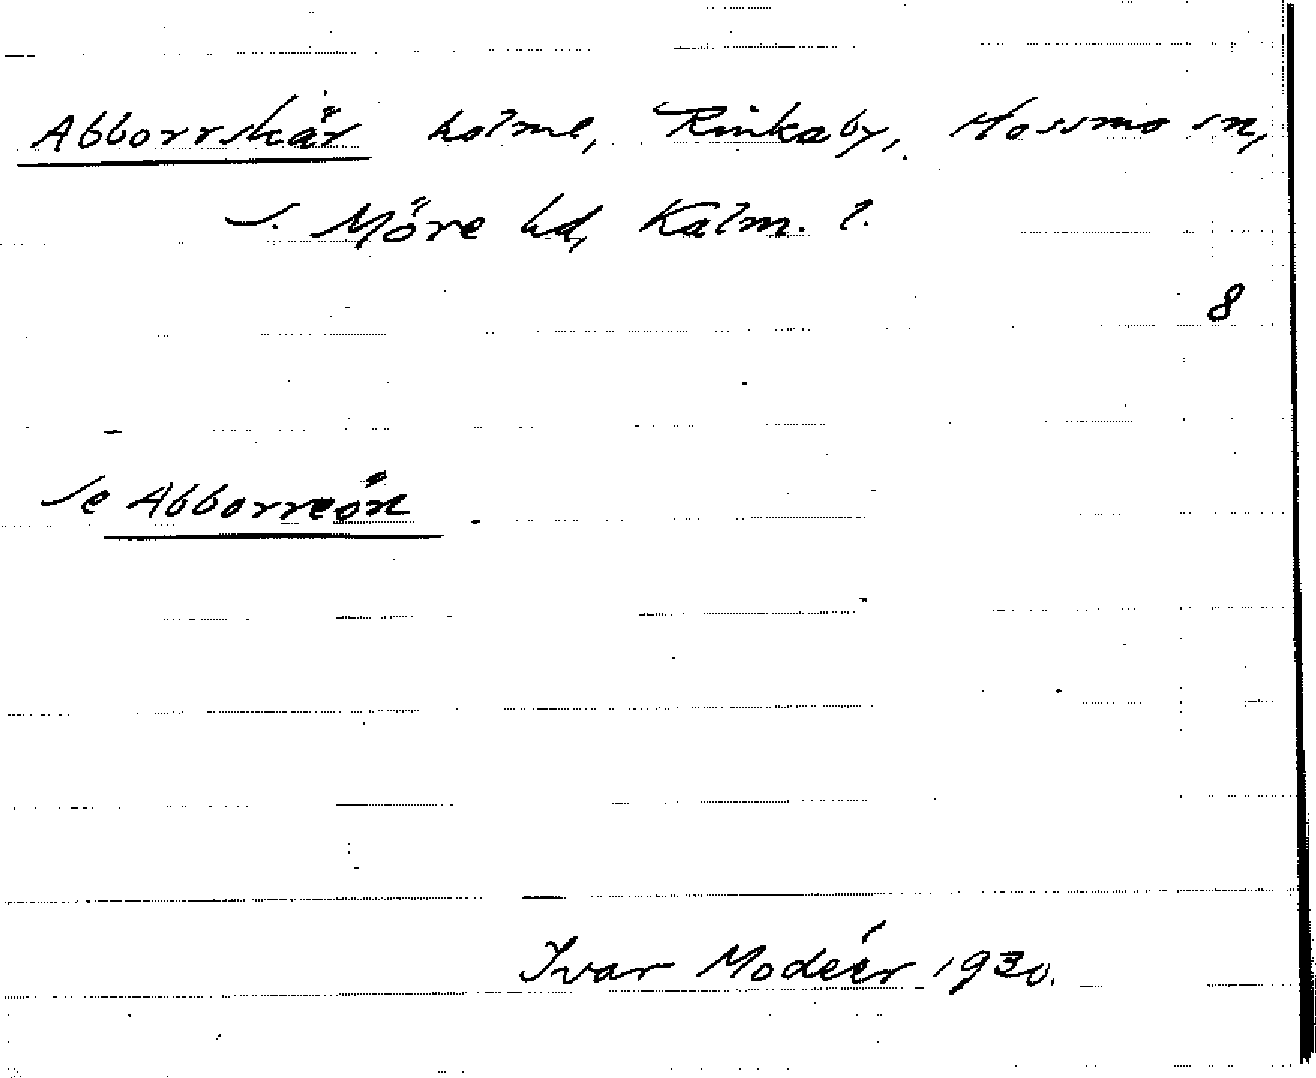 Abborrskär holme, Rinkaby, Hossmo sn,
S. Möre hd, Kalm. l.
8
Se Abborreön.
Ivar Modéer 1930.